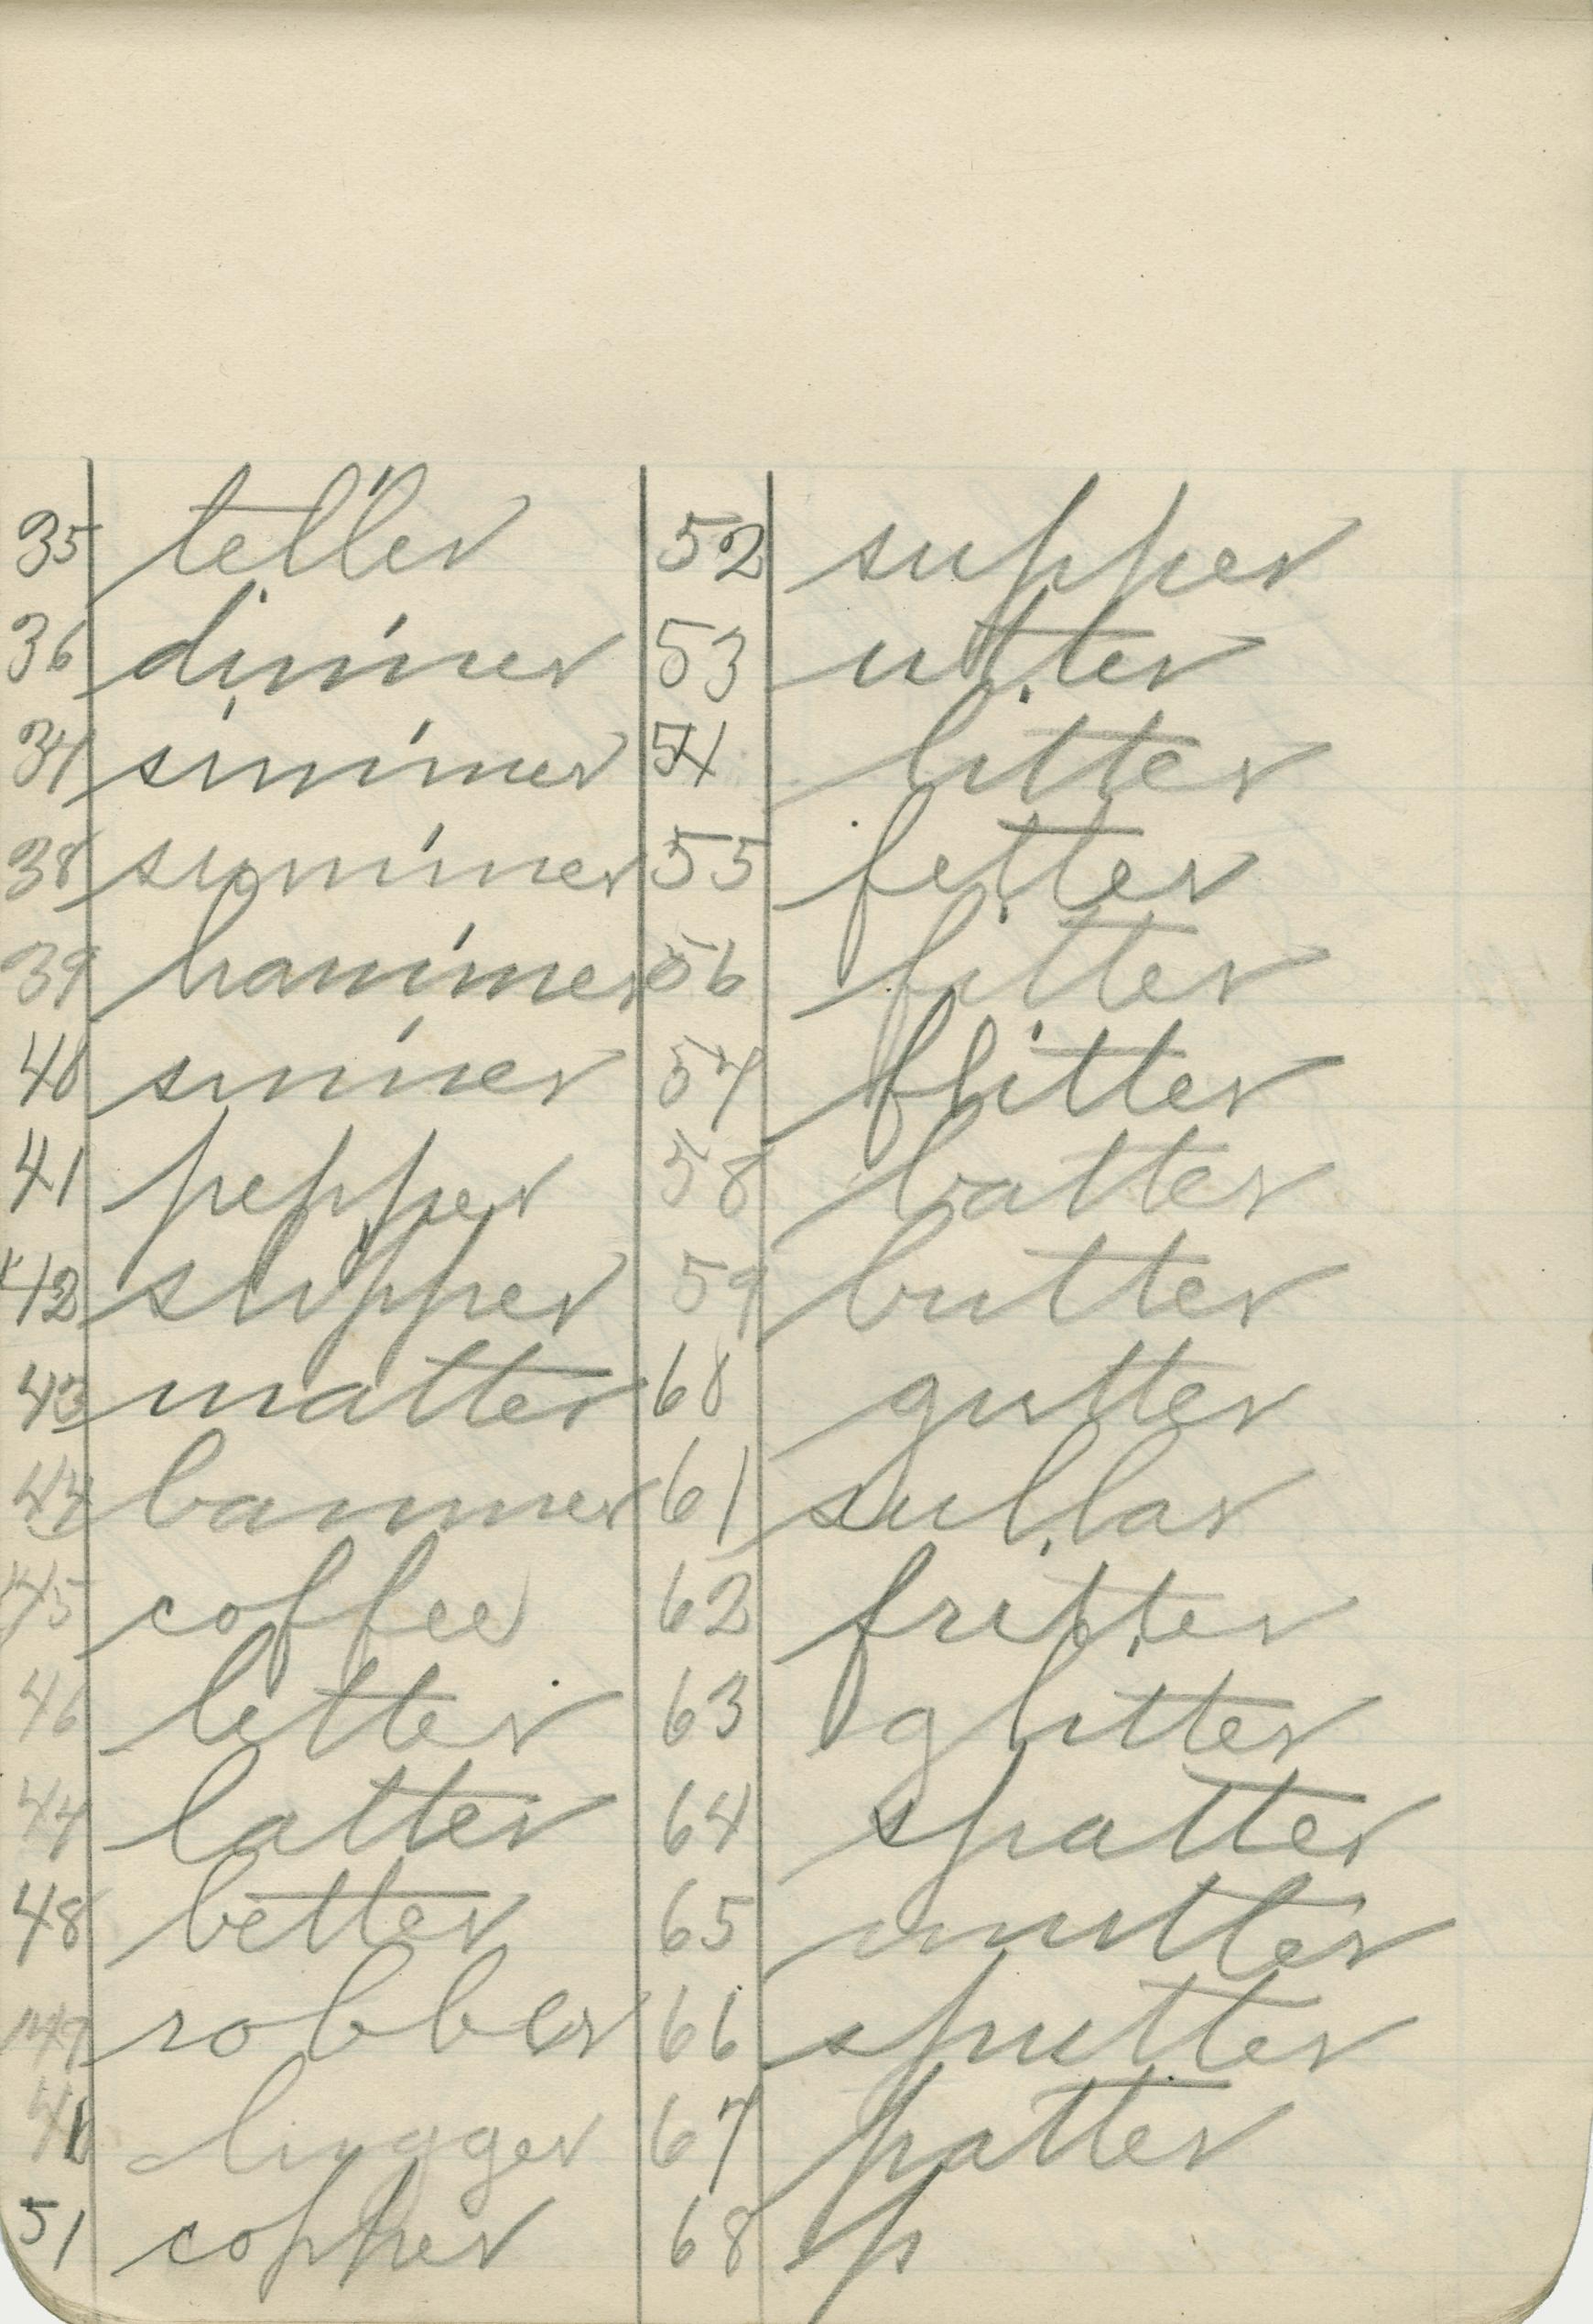 35 teller
36 dinner
37 simmer
38 summer
39 hammer
40 sinner
41 pepper
42 slipper
43 matter
44 banner
45 coffee
46 letter
47 latter
48 better
49 robber
copper
51 copper
52 supper
53 utter
54 litter
55 fetter
56 fitter
57 flitter
58 batter
59 butter
60 gutter
61 sullar
62 fritter
63 glitter
64 spatter
65 mutter
66 sputter
67 patter
68 p